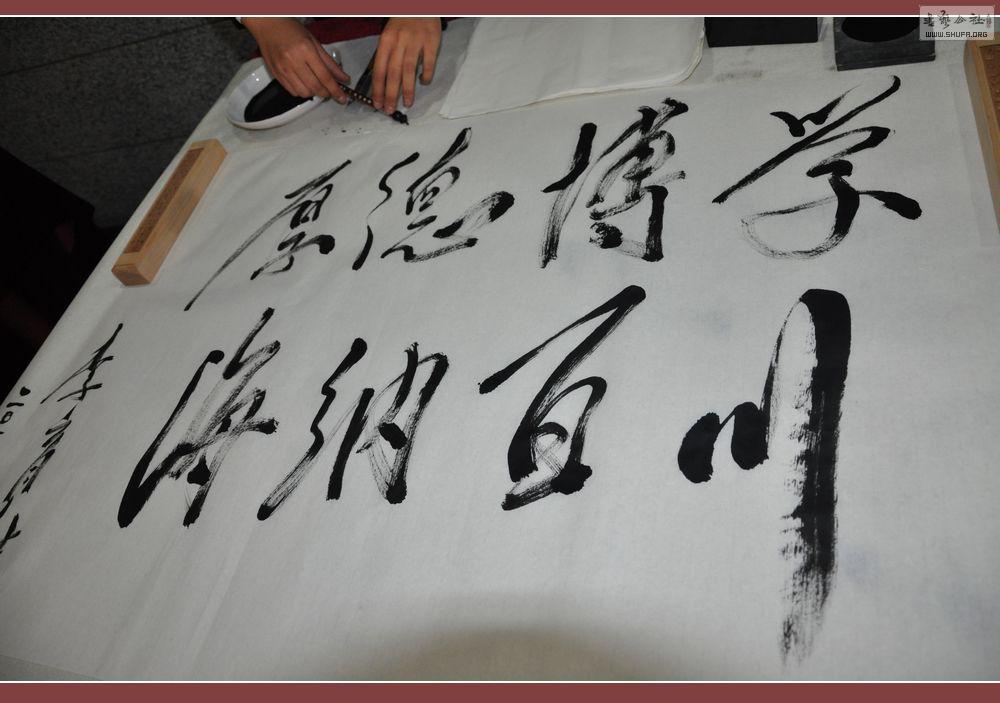 书艺公社
WWW.SHUFA.ORG
厚德博学
海纳百川
李